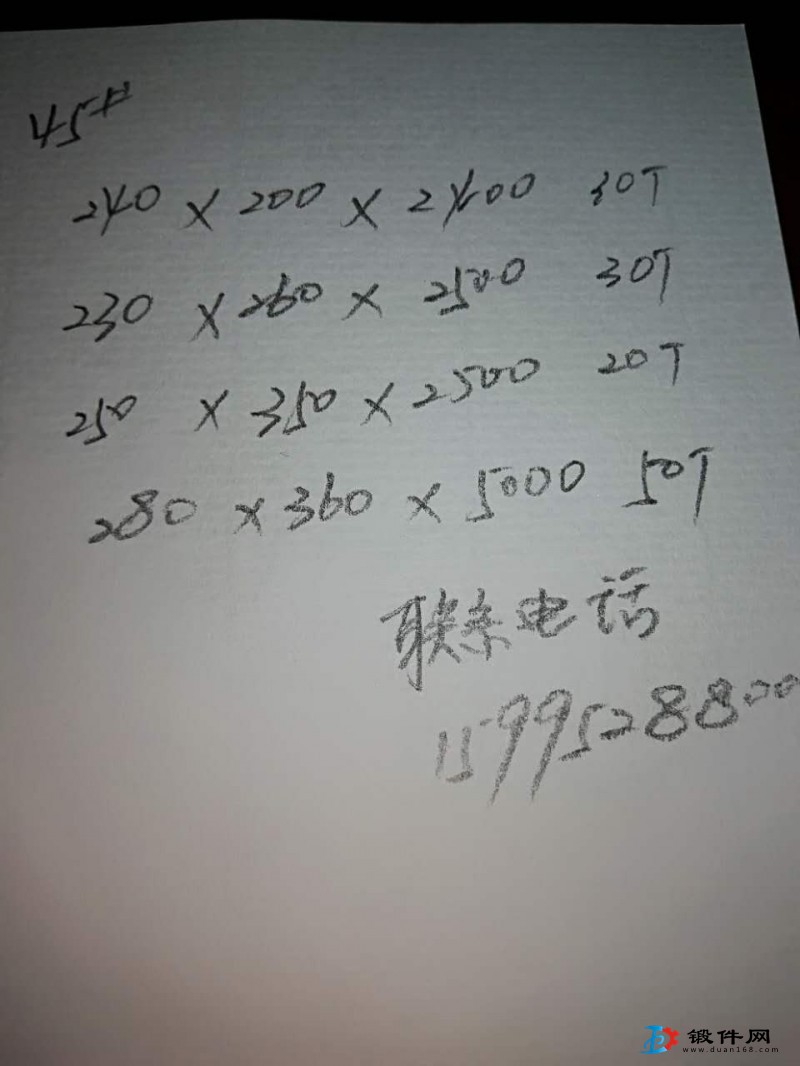 45#
240 × 200 × 2400 30T
230 × 260 × 2500 30T
250 × 350 × 2500 20T
280 × 360 × 5000 50T
联系电话
15995288200
锻件网
www.duan168.com